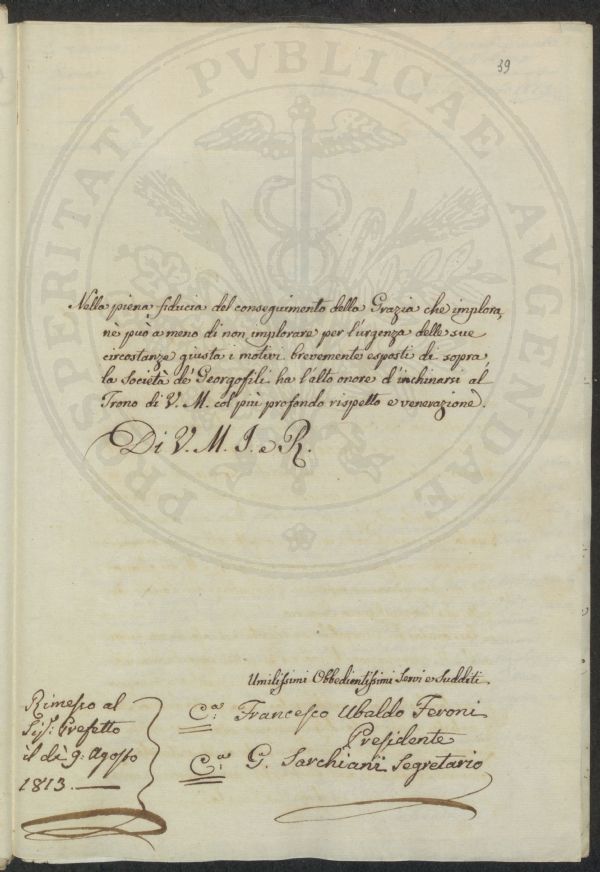 39
PROSPERITATI PVBLICAE AVGENDAE
Nella piena fiducia del conseguimento della Grazia che implora,
nè può a meno di non implorare per l'urgenza delle sue
circostanze giusta i motivi brevemente esposti di sopra,
la Società de' Georgofili ha l'alto onore d'inchinarsi al
Trono di V. M. col più profondo rispetto e venerazione.
Di V. M. I. e R.
Umilissimi Obbedientissimi Servi e Sudditi
Ca: Francesco Ubaldo Feroni
Presidente
Ca: G. Sarchiani Segretario
Rimesso al
Sigr: Prefetto
il dì 9: Agosto
1813.